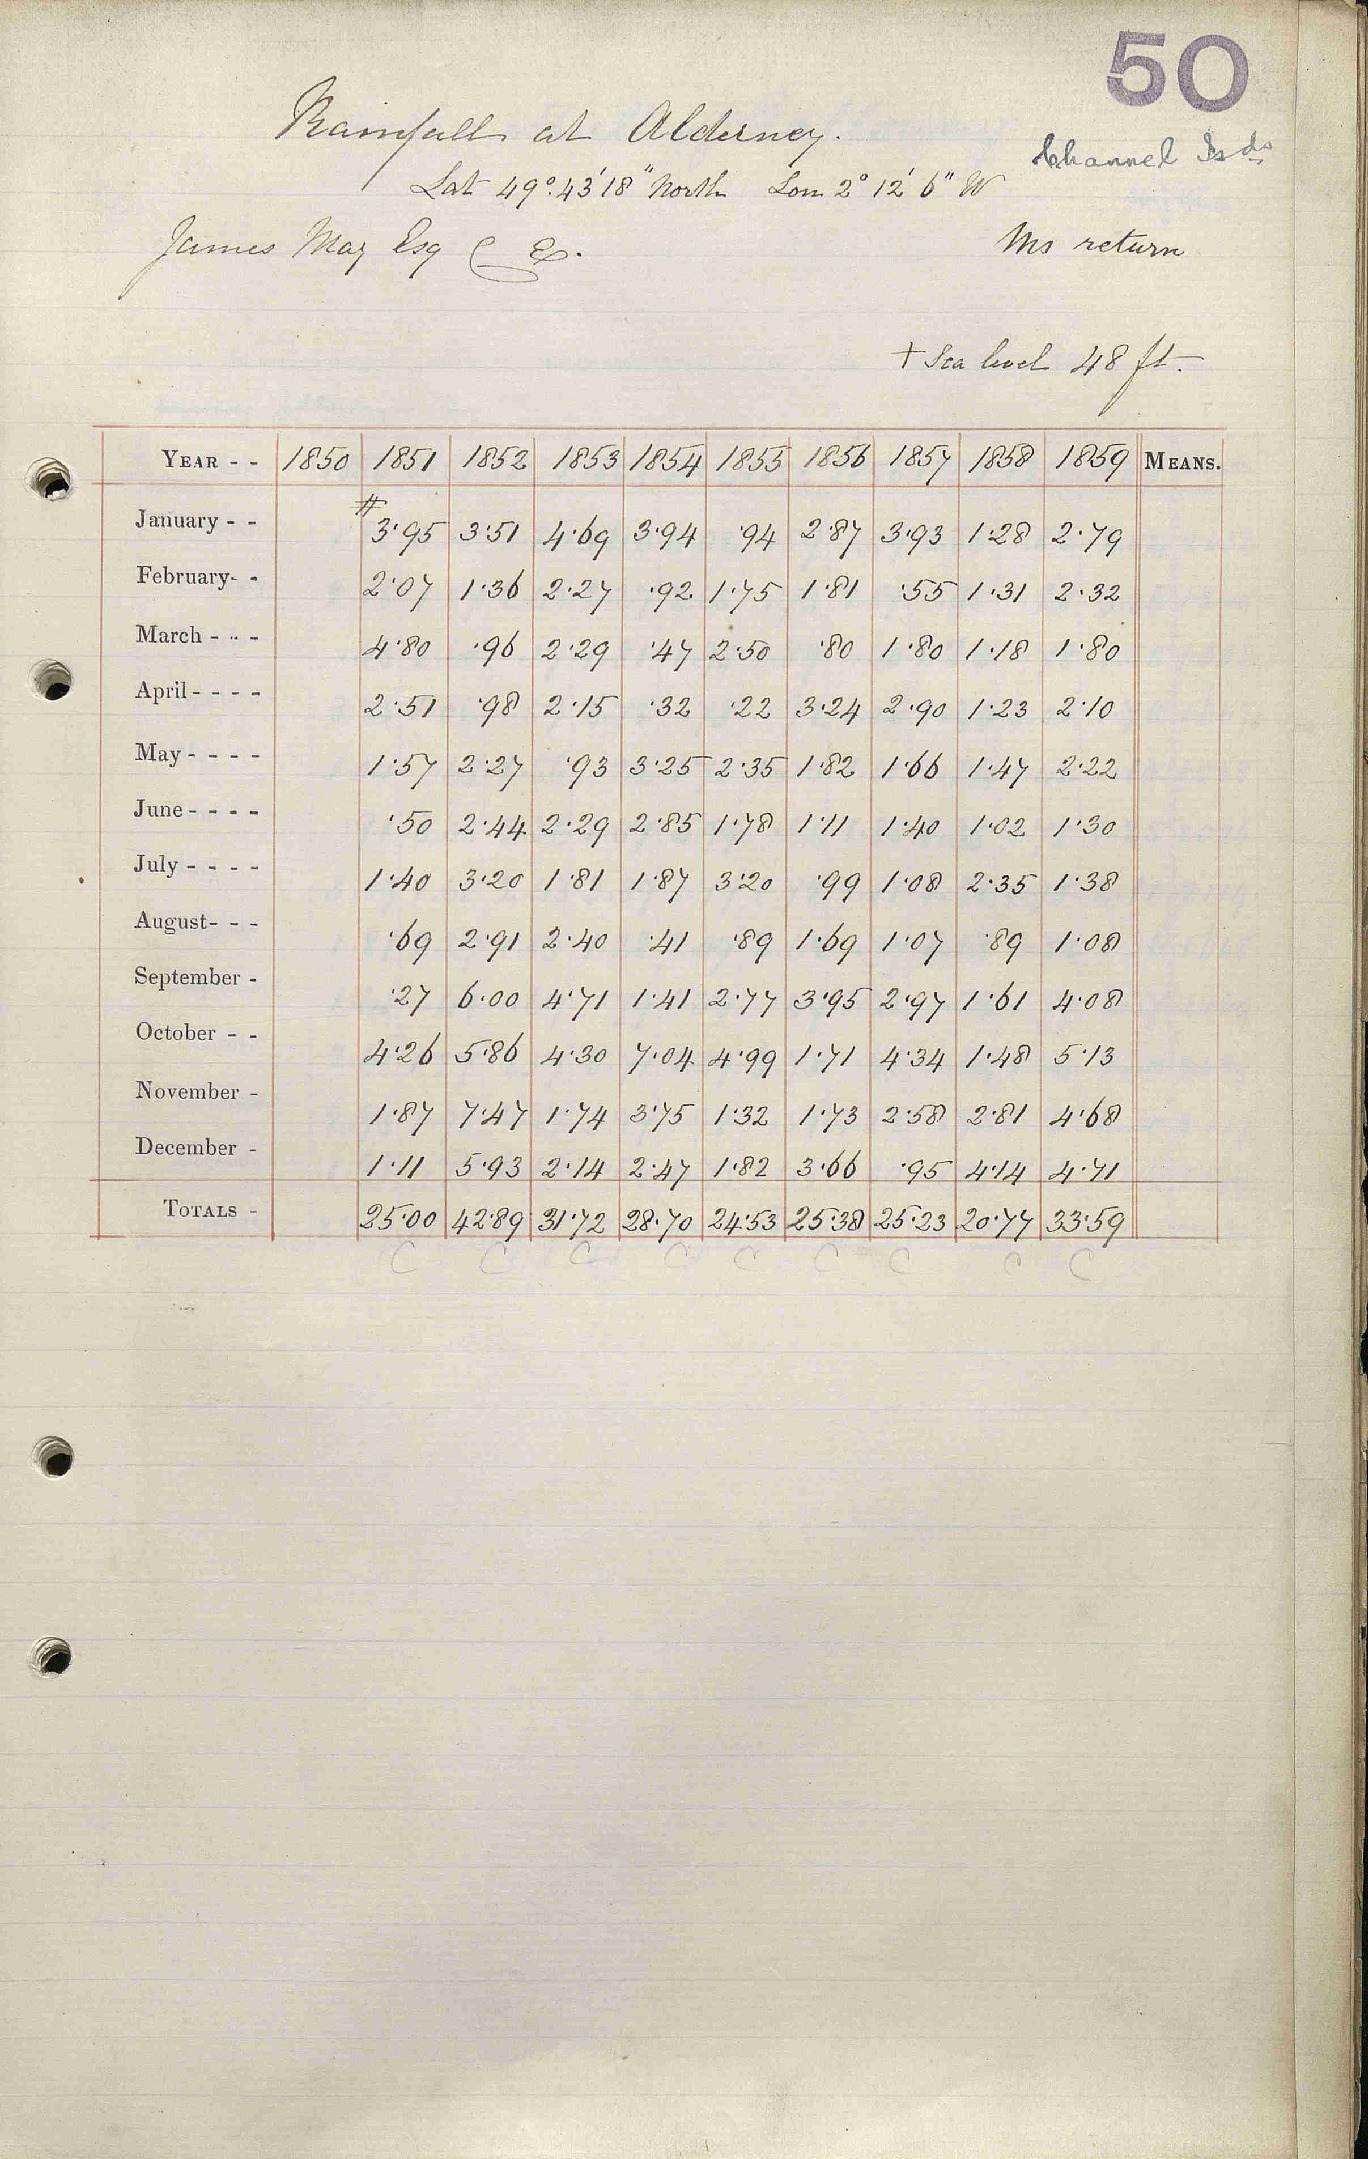 50
Rainfall at Alderney.
Channel Isds
Lat 49°.43'18" North Lon 2° 12' 6" W
James May Esq C E.
Ms return
+ Sea level 48 ft.
YEAR - - 1850 1851 1852 1853 1854 1855 1856 1857 1858 1859 MEANS.
#
January - - 3·95 3·51 4·69 3·94 ·94 2·87 3·93 1·28 2·79
February- - 2·07 1·36 2·27 ·92 1·75 1·81 ·55 1·31 2·32
March - - - 4·80 ·96 2·29 ·47 2·50 ·80 1·80 1·18 1·80
April - - - - 2·51 ·98 2·15 ·32 ·22 3·24 2·90 1·23 2·10
May - - - - 1·57 2·27 ·93 3·25 2·35 1·82 1·66 1·47 2·22
June - - - - ·50 2·44 2·29 2·85 1·78 1·11 1·40 1·02 1·30
July - - - - 1·40 3·20 1·81 1·87 3·20 ·99 1·08 2·35 1·38
August- - - ·69 2·91 2·40 ·41 ·89 1·69 1·07 ·89 1·08
September - ·27 6·00 4·71 1·41 2·77 3·95 2·97 1·61 4·08
October - - 4·26 5·86 4·30 7·04 4·99 1·71 4·34 1·48 5·13
November - 1·87 7·47 1·74 3·75 1·32 1·73 2·58 2·81 4·68
December - 1·11 5·93 2·14 2·47 1·82 3·66 ·95 4·14 4·71
TOTALS - 25·00 42·89 31·72 28·70 24·53 25·38 25·23 20·77 33·59
C C C C C C C C C